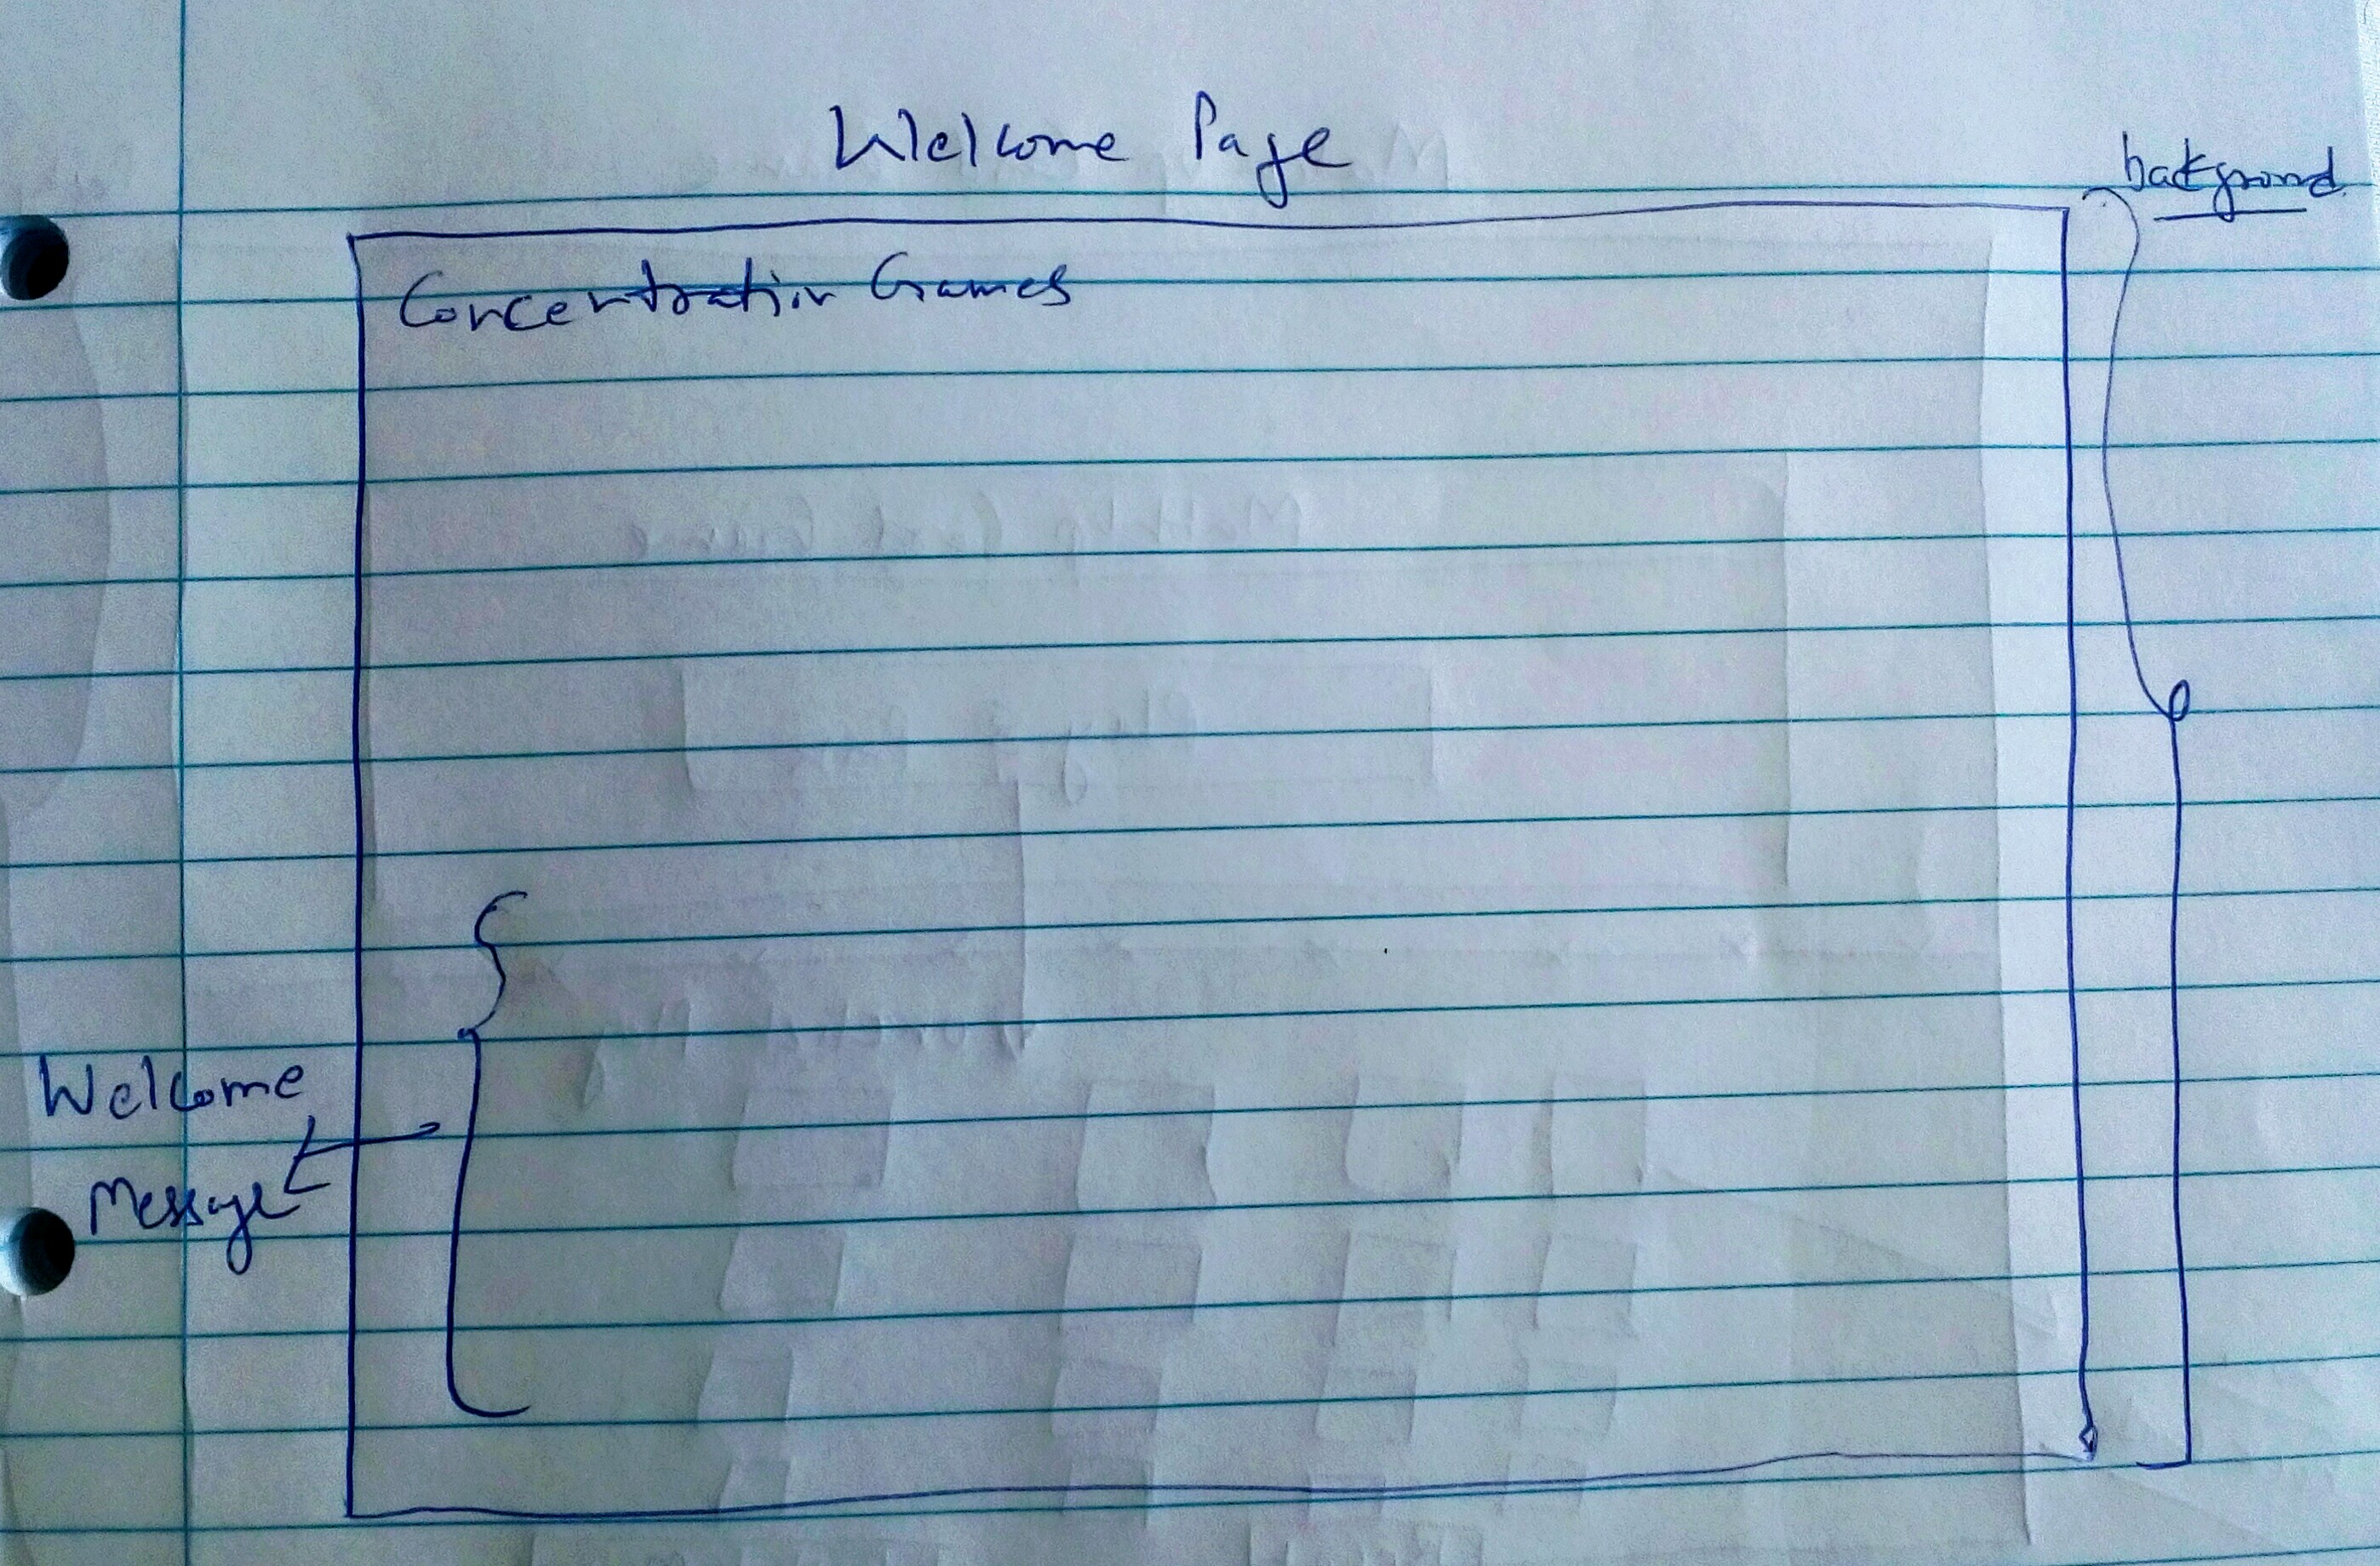 Welcome Page
background
Concentration Games
Welcome
Message